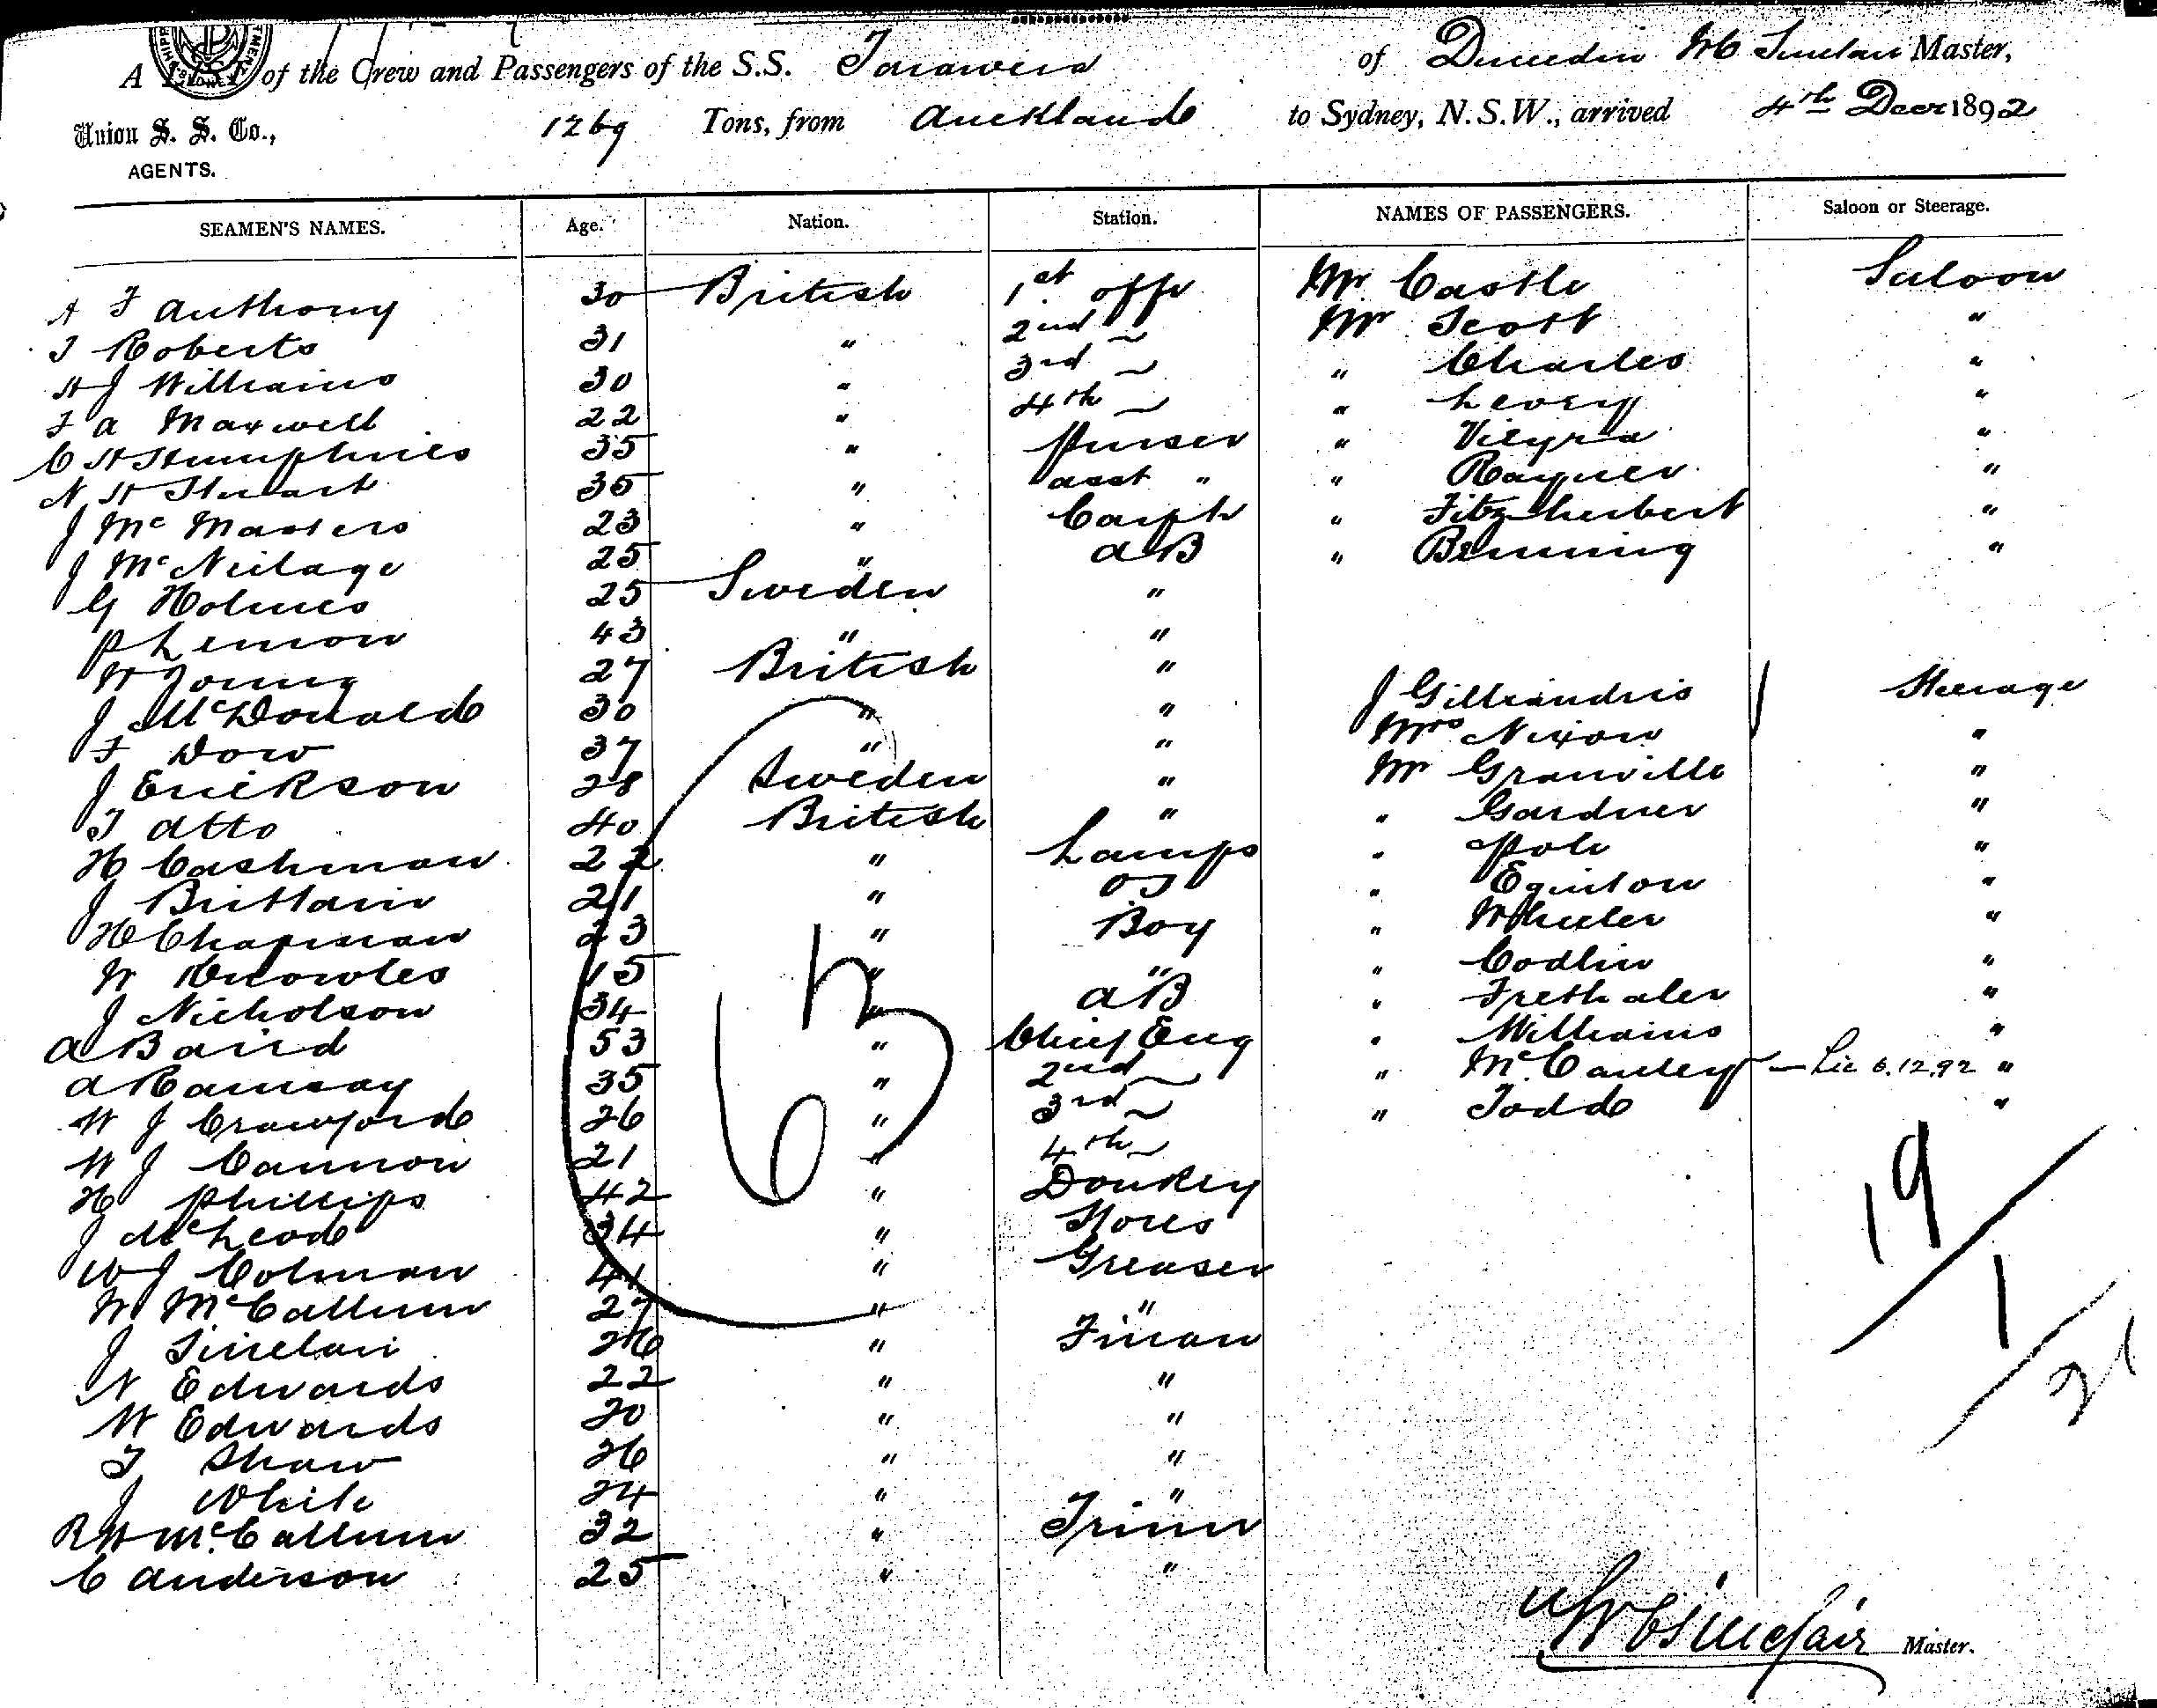 A LIST of the Crew and Passengers of the S.S. Tarawera of Dunedin W C Sinclair Master,
Union S. S. Co., 1269 Tons, from Auckland to Sydney, N.S.W., arrived 4th Decr 1892
AGENTS.
SEAMEN'S NAMES. Age. Nation. Station. NAMES OF PASSENGERS. Saloon or Steerage.
A F Anthony 30 British 1st offr Mr Castle Saloon
T Roberts 31 " 2nd ~ Mr Scott "
H J Williams 30 " 3rd ~ " Charles "
F A Maxwell 22 " 4th ~ " Levey "
C H Humphries 35 " Purser " Vieyra "
N H Stuart 35 " asst " " Rayner "
J McMasters 23 " Carptr " Fitzherbert "
J McNeilage 25 " AB " Benning "
G Holmes 25 Sweden "
P Lemon 43 " "
W Young 27 British "
J McDonald 30 " " J Gilliandris Steerage
F Dow 37 " " Mrs Nixon "
J Erickson 28 Sweden " Mr Granville "
T Atto 40 British " " Gardner "
H Cashman 22 " Lamps " Pole "
J Brittain 21 " OS " Eginton "
H Chapman 23 " Boy " Wheeler "
W Knowles 15 " " " Codlin "
J Nicholson 34 " AB " Frethaler "
A Baird 53 " Chief Eng " Williams "
A Ramsay 35 " 2nd ~ " McCauley - Lic 6.12.92 "
W J Crawford 26 " 3rd ~ " Todd "
W J Cannon 21 " 4th ~
H Phillips 42 " Donkey
J McLeod 34 " Stores
W J Colman 41 " Greaser
W McCallum 27 " "
J Sinclair 26 " Firman
N Edwards 22 " "
W Edwards 20 " "
T Shaw 26 " "
J White 24 " "
R H McCallum 32 " Trimr
C Anderson 25 " "
19/1/21
W C Sinclair Master.